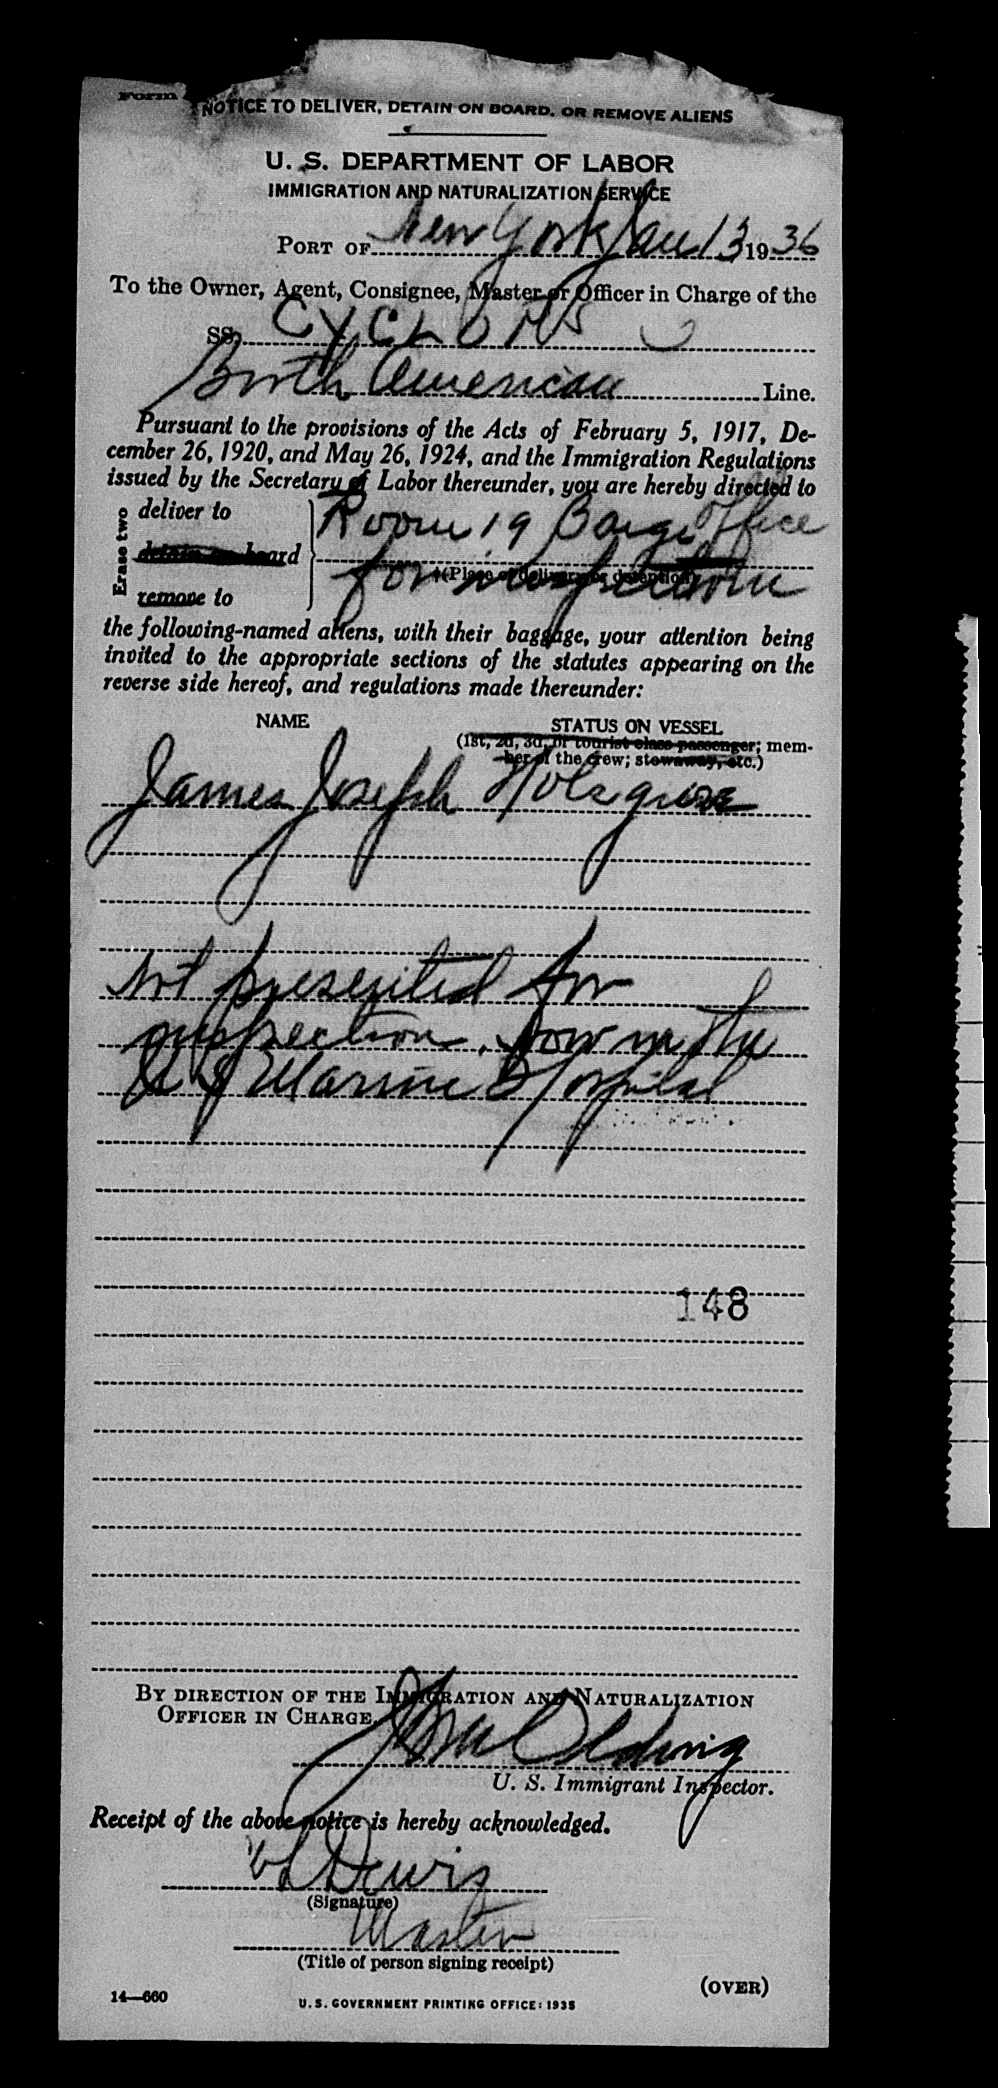 Form
NOTICE TO DELIVER, DETAIN ON BOARD, OR REMOVE ALIENS
U. S. DEPARTMENT OF LABOR
IMMIGRATION AND NATURALIZATION SERVICE
PORT OF New York Jan 13 1936
To the Owner, Agent, Consignee, Master or Officer in Charge of the
SS. CYCLOPS
American Line.
Pursuant to the provisions of the Acts of February 5, 1917, De-
cember 26, 1920, and May 26, 1924, and the Immigration Regulations
issued by the Secretary of Labor thereunder, you are hereby directed to
Erase two
deliver to
detain on board
remove to
Room 19 Barge Office
(Place of delivery or detention)
for inspection
the following-named aliens, with their baggage, your attention being
invited to the appropriate sections of the statutes appearing on the
reverse side hereof, and regulations made thereunder:
NAME
STATUS ON VESSEL
(1st, 2d, 3d, or tourist class passenger; mem-
ber of the crew; stowaway, etc.)
James Joseph
Not presented for
inspection. Now in the
U S Marine Hospital
148
BY DIRECTION OF THE IMMIGRATION AND NATURALIZATION
OFFICER IN CHARGE
U. S. Immigrant Inspector.
Receipt of the above notice is hereby acknowledged.
(Signature)
Master
(Title of person signing receipt)
(OVER)
14—660
U. S. GOVERNMENT PRINTING OFFICE: 1935